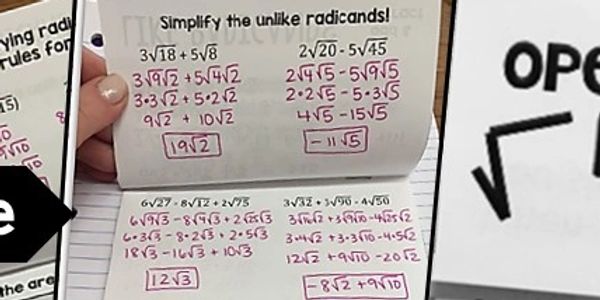 ying radi
rules for
15)
e
the are
Simplify the unlike radicands!
3√18 + 5√8
3√9√2 + 5√4√2
3•3√2 + 5•2√2
9√2 + 10√2
19√2
2√20 - 5√45
2√4√5 - 5√9√5
2•2√5 - 5•3√5
4√5 - 15√5
-11√5
6√27 - 8√12 + 2√75
6√9√3 - 8√4√3 + 2√25√3
6•3√3 - 8•2√3 + 2•5√3
18√3 - 16√3 + 10√3
12√3
3√32 + 3√90 - 4√50
3√16√2 + 3√9√10 - 4√25√2
3•4√2 + 3•3√10 - 4•5√2
12√2 + 9√10 - 20√2
-8√2 + 9√10
OPE